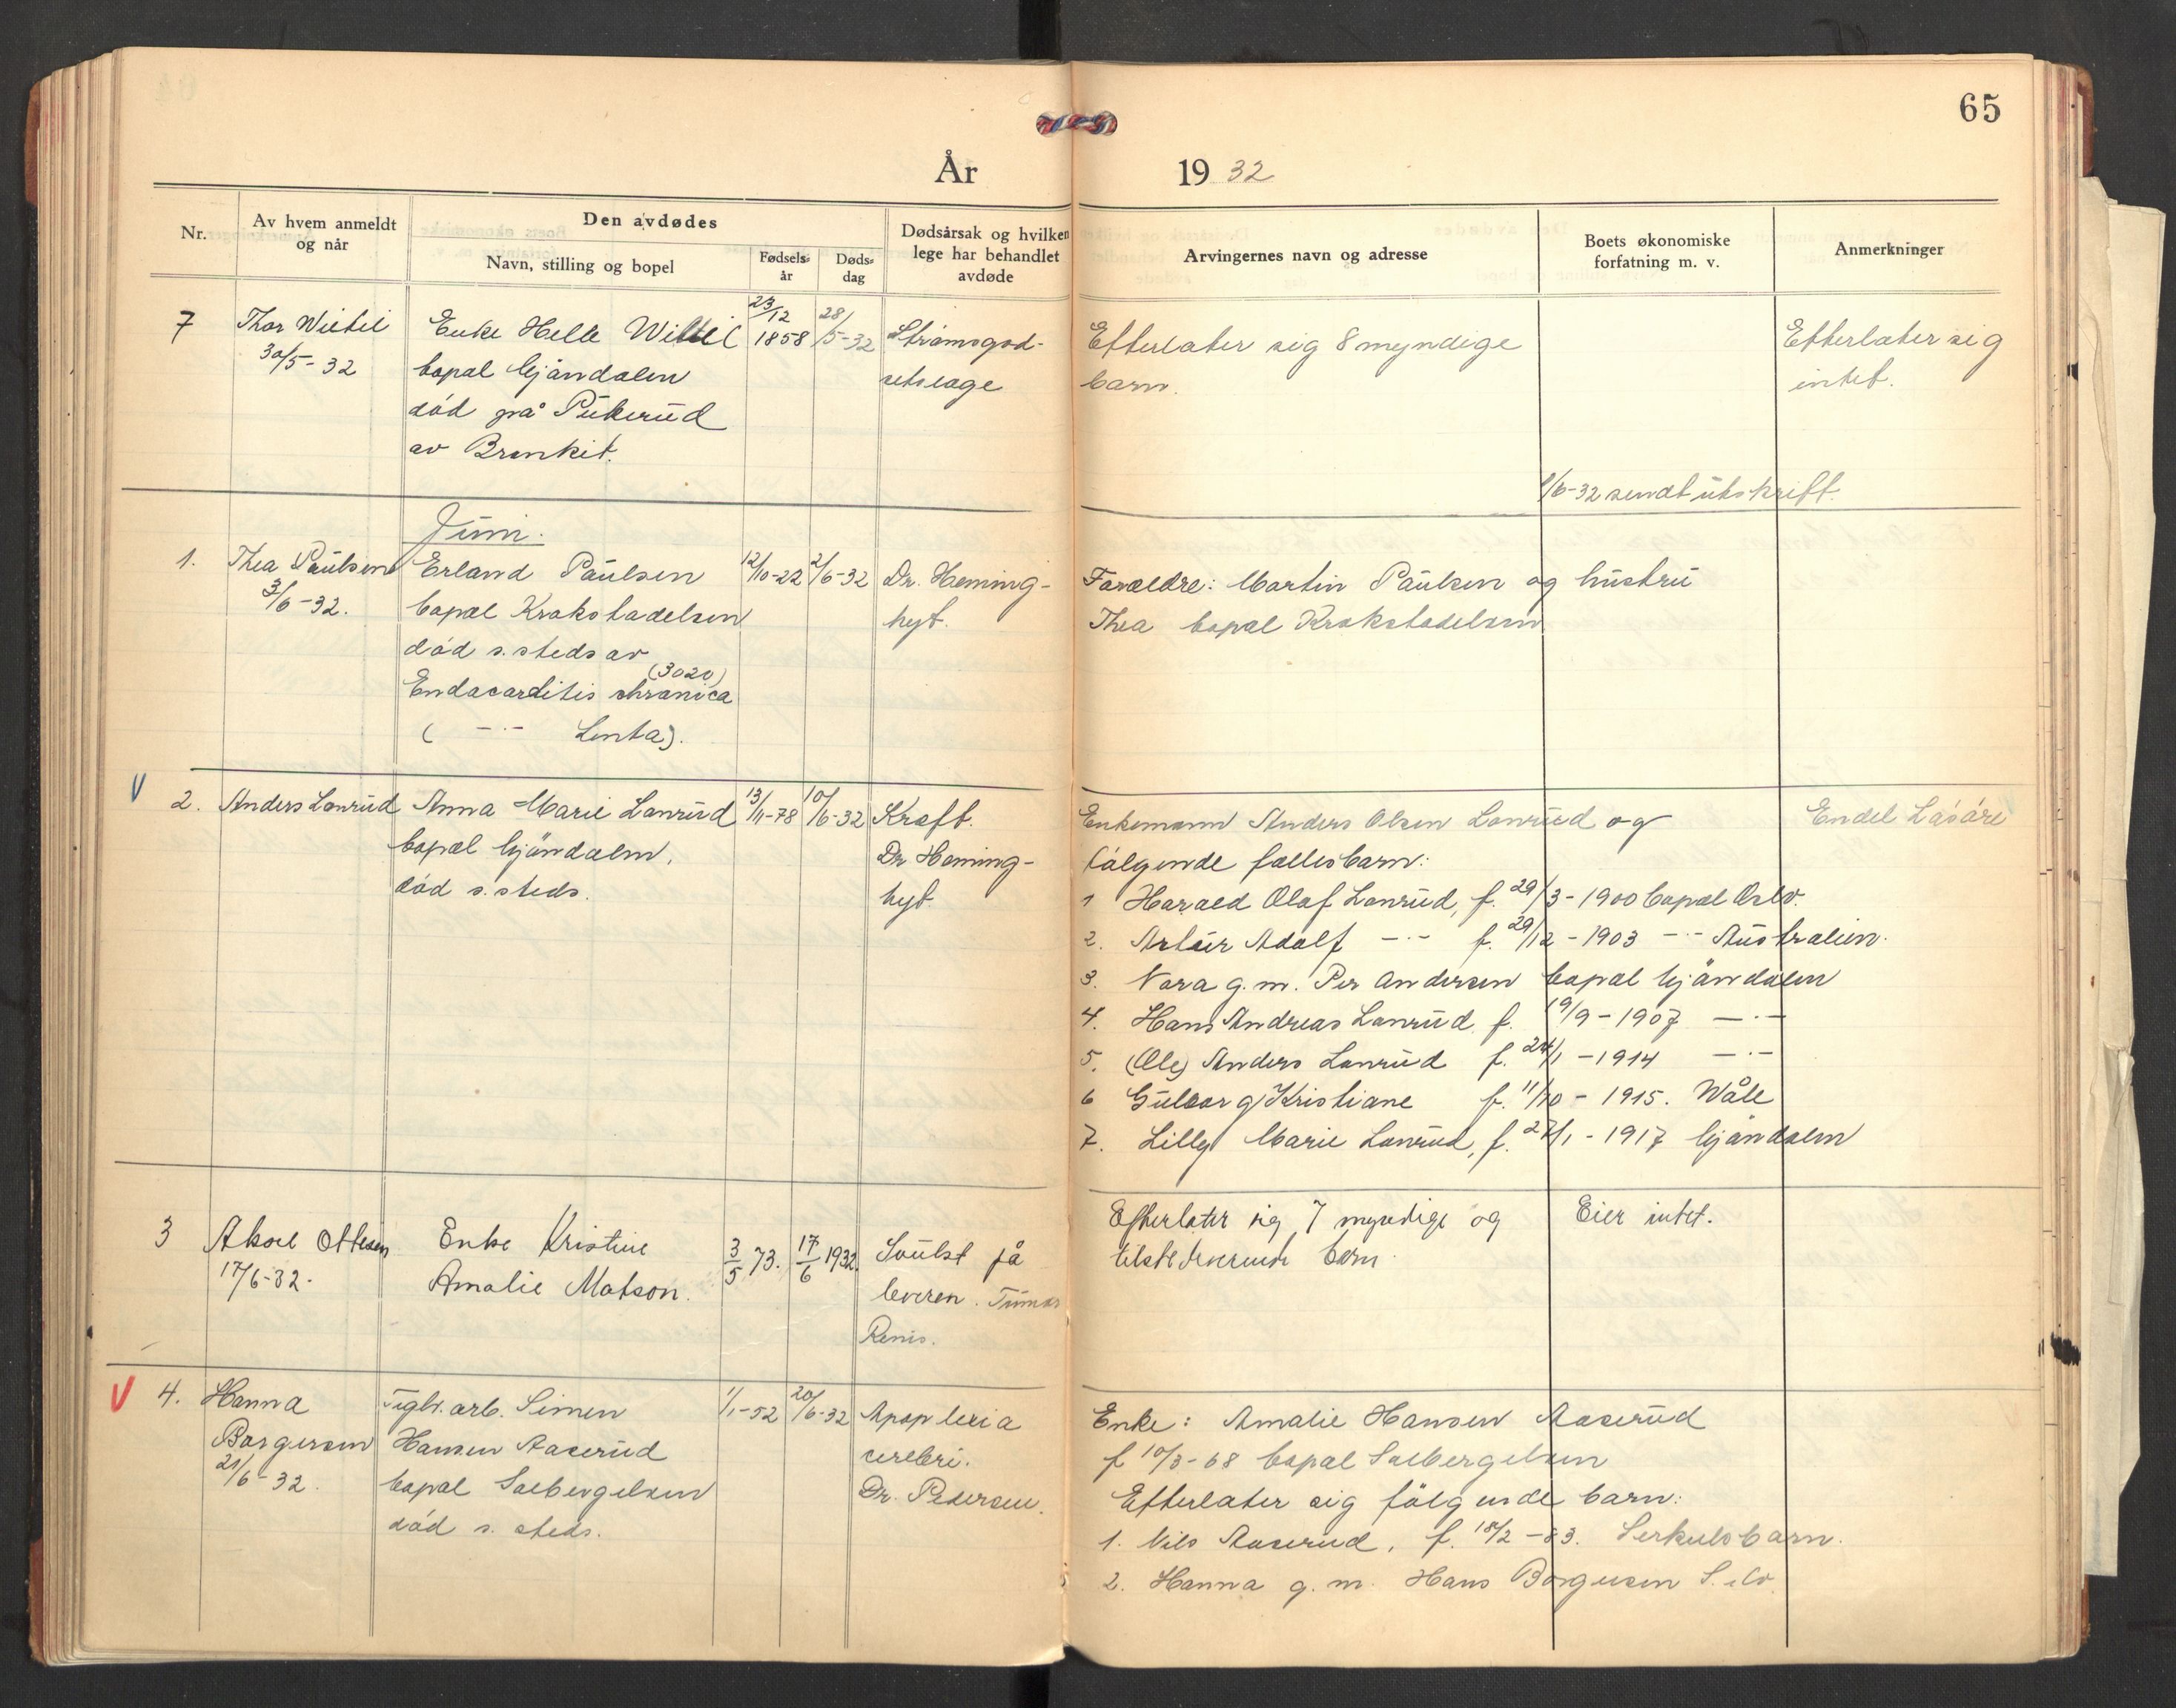 65
År 1932
Nr.
Av hvem anmeldt
og når
Den avdødes
Navn, stilling og bopel
Fødsels-
år
Døds-
dag
Dødsårsak og hvilken
lege har behandlet
avdøde
Arvingernes navn og adresse
Boets økonomiske
forfatning m. v.
Anmerkninger
7
Thor Wiltil
30/5-32
Enke Helle Wiltil
bopæl Mjøndalen
død på Pukerud
av Bronkit.
23/12
1858
28/5-32
Strømsgod-
setslæge
Efterlater sig 8 myndige
barn.
Efterlater sig
intet.
1/6-32 sendt utskrift.
Juni.
1.
Thea Paulsen
3/6-32.
Erland Paulsen
bopæl Krokstadelven
død s. steds av
(3020)
Endocarditis chronica
( -"- Lenta).
12/10-22
2/6-32
Dr. Heming-
hyt.
Forældre: Martin Paulsen og hustru
Thea bopæl Krokstadelven
V
2.
Anders Lonrud
Anna Marie Lonrud
bopæl Mjøndalen,
død s. steds.
13/11-78
10/6-32
Kræft.
Dr Heming-
hyt.
Enkemann Anders Olsen Lonrud og
følgende fællesbarn:
1 Harald Olaf Lonrud, f. 29/3-1900 bopæl Oslo.
2. Artur Adolf -"- f. 29/12-1903 -"- Australien.
3. Nora g.m. Per Andersen bopæl Mjøndalen
4. Hans Andreas Lonrud f. 19/9-1907 -"-
5. (Ole) Anders Lonrud f. 24/1-1914 -"-
6 Gulborg Kristiane f. 11/10-1915. Våle
7. Lilly Marie Lonrud, f. 27/1-1917 Mjøndalen
Endel Løsøre
3
Aksel Ottesen
17/6-32.
Enke Kristine
Amalie Matson.
3/5 73.
17/6 1932
Svulst på
leveren. Tumor
Renis.
Efterlater sig 7 myndige og
tilstedeværende barn.
Eier intet.
V
4.
Hanna
Borgersen
21/6-32.
Teglv. arb. Simen
Hansen Aaserud
bopæl Solbergelven
død s. steds.
1/1-52
20/6-32
Apoplexia
cerebri.
Dr. Pedersen.
Enke: Amalie Hansen Aaserud
f 10/3-68 bopæl Solbergelven
Efterlater sig følgende barn:
1. Nils Aaserud, f. 18/2-83. Serkulsbarn.
2. Hanna g. m. Hans Borgersen S.elv.